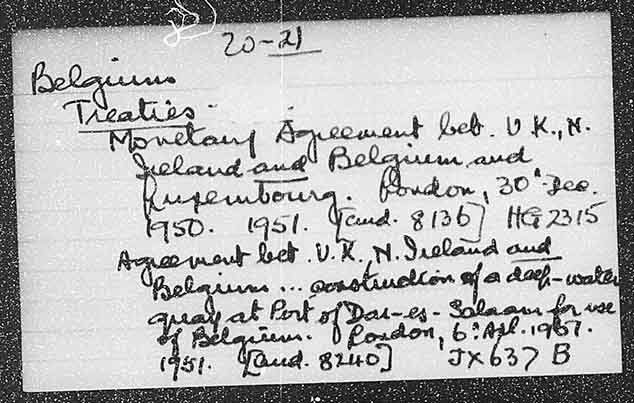 20-21
Belgium
Treaties.
Monetary Agreement bet. U.K., N.
Ireland and Belgium and
Luxembourg. London, 30° Dec.
1950. 1951. [Cmd. 8136] HG 2315
Agreement bet. U.K., N. Ireland and
Belgium ... construction of a deep-water
quay at Port of Dar-es-Salaam for use
of Belgium. London, 6° Apl. 1951.
1951. [Cmd. 8240] JX 637 B